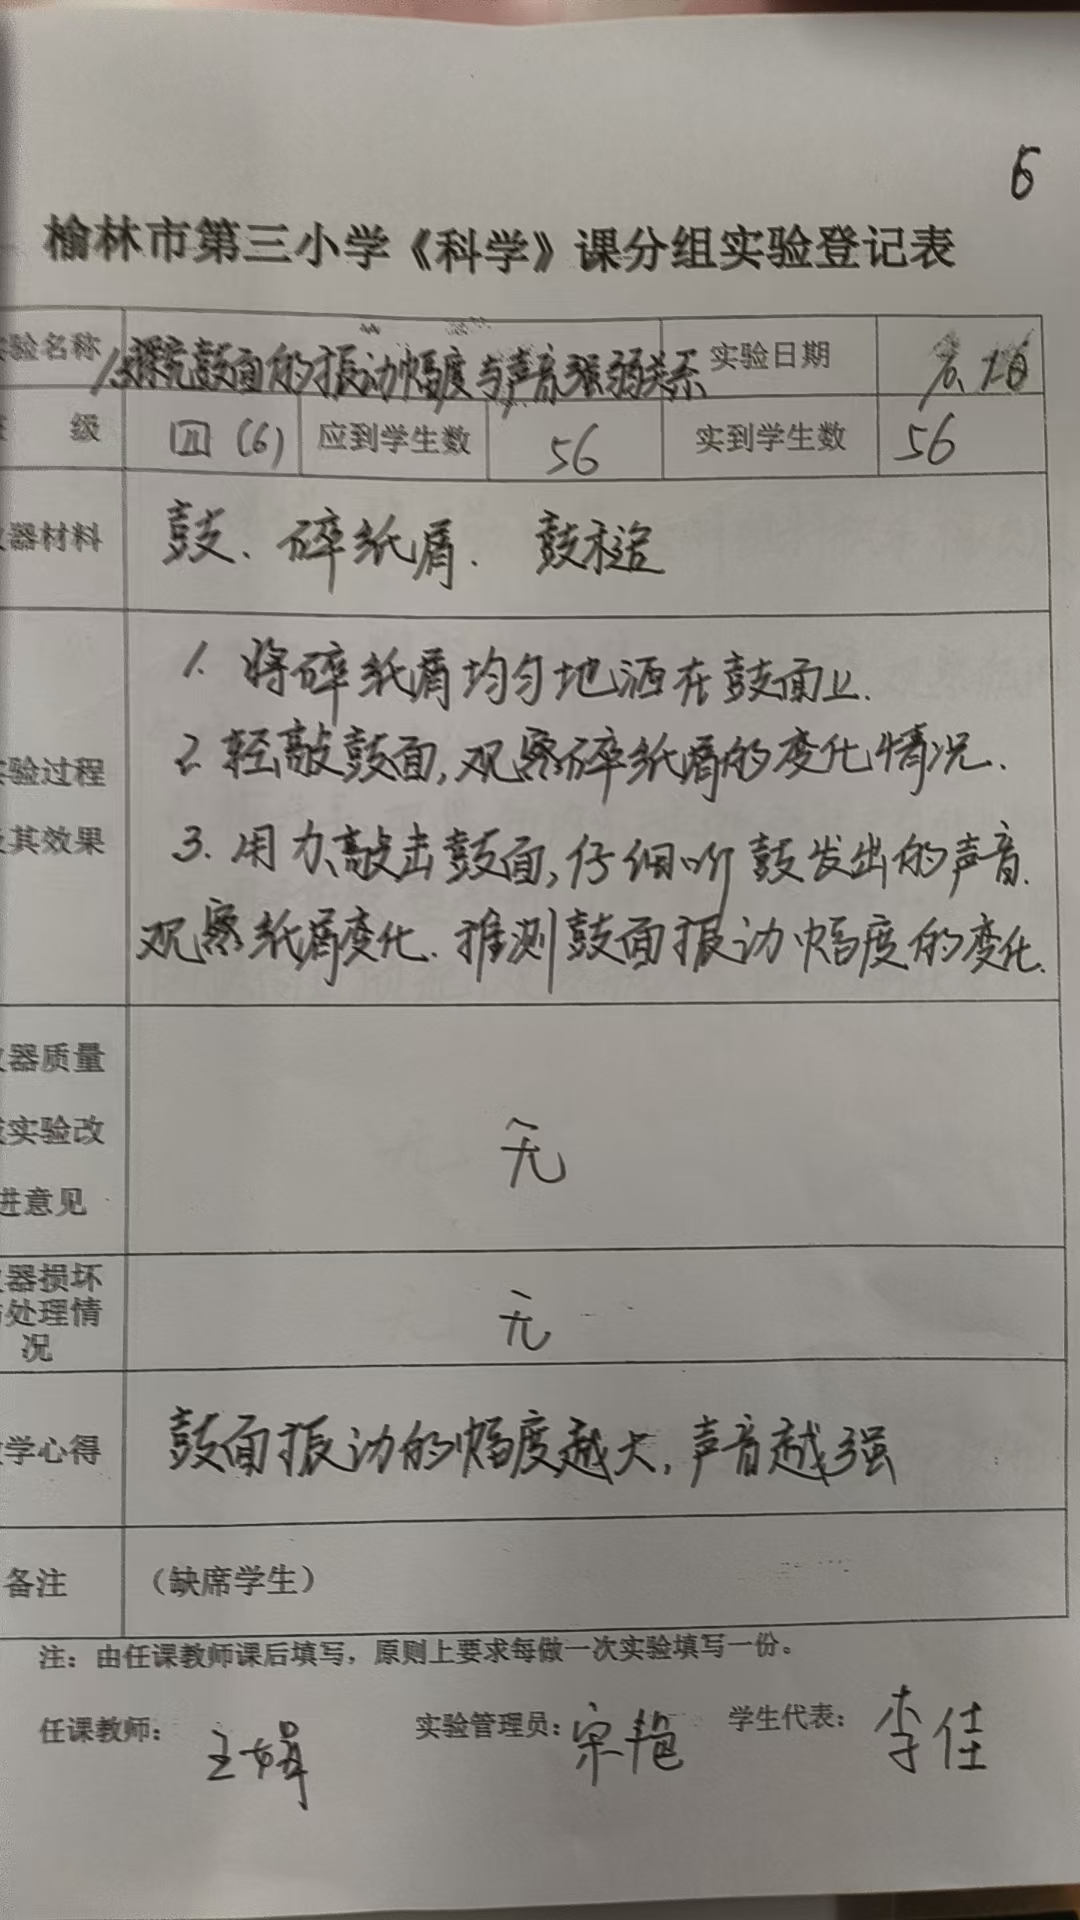 6
榆林市第三小学《科学》课分组实验登记表
验名称 探究鼓面的振动幅度与声音强弱关系 实验日期
级 四(6) 应到学生数 56 实到学生数 56
器材料 鼓、碎纸屑、鼓槌
1. 将碎纸屑均匀地洒在鼓面上.
2. 轻敲鼓面,观察碎纸屑的变化情况.
验过程
其效果
3. 用力敲击鼓面,仔细听鼓发出的声音.
观察纸屑变化.推测鼓面振动幅度的变化.
器质量
实验改
进意见
无
器损坏
处理情
况
无
学心得 鼓面振动的幅度越大,声音越强
备注 (缺席学生)
注:由任课教师课后填写,原则上要求每做一次实验填写一份。
任课教师: 王 实验管理员: 宋艳 学生代表: 李佳